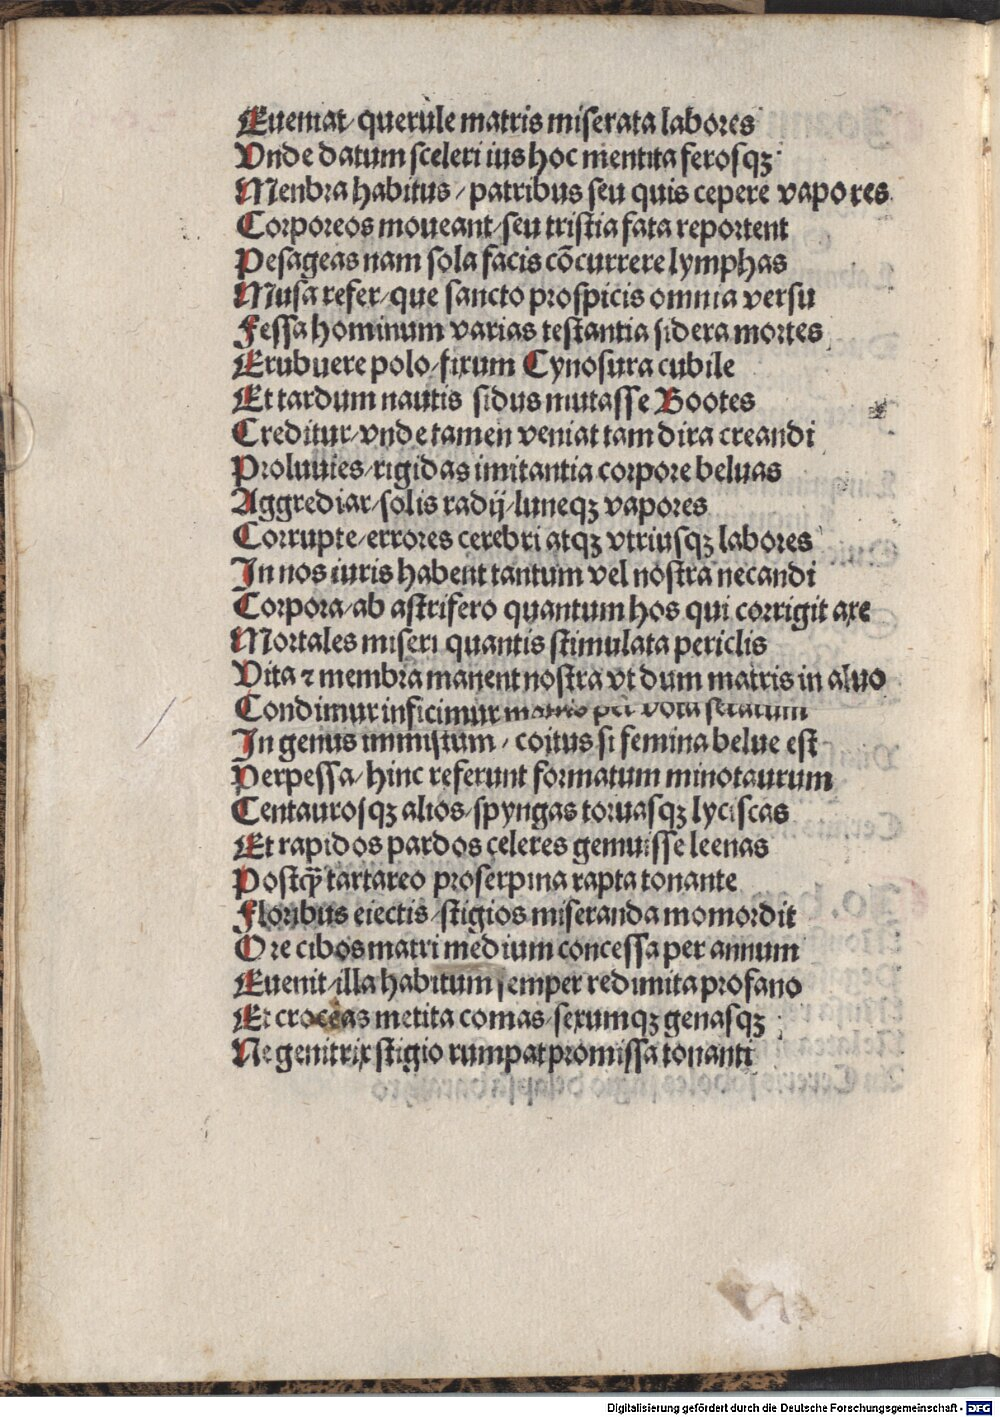 Eueniat/ querule matris miserata labores
Vnde datum sceleri ius hoc mentita ferosqꝫ
Menbra habitus/ patribus seu quis cepere vapores
Corporeos moueant/ seu tristia fata reportent
Pesageas nam sola facis cōcurrere lymphas
Musa refer/ que sancto prospicis omnia versu
Fessa hominum varias testantia sidera mortes
Erubuere polo/ fixum Cynosura cubile
Et tardum nautis sidus mutasse Bootes
Creditur/ vnde tamen veniat tam dira creandi
Proluuies/ rigidas imitantia corpore beluas
Aggrediar/ solis radij/ luneqꝫ vapores
Corrupte/ errores cerebri atqꝫ vtriusqꝫ labores
In nos iuris habent tantum vel nostra necandi
Corpora/ ab astrifero quantum hos qui corrigit axe
Mortales miseri quantis stimulata periclis
Vita ⁊ membra manent nostra vt dum matris in aluo
Condimur inficimur matris per vota
In genus immistum/ coitus si femina belue est
Perpessa/ hinc referunt formatum minotaurum
Centaurosqꝫ alios/ spyngas toruasqꝫ lyciscas
Et rapidos pardos celeres genuisse leenas
Postqꝫ̃ tartareo proserpina rapta tonante
Floribus eiectis/ stigios miseranda momordit
Ore cibos matri medium concessa per annum
Euenit/ illa habitum semper redimita profano
Et croceas metita comas/ sexumqꝫ genasqꝫ
Ne genitrix stigio rumpat promissa tonanti
Digitalisierung gefördert durch die Deutsche Forschungsgemeinschaft - DFG